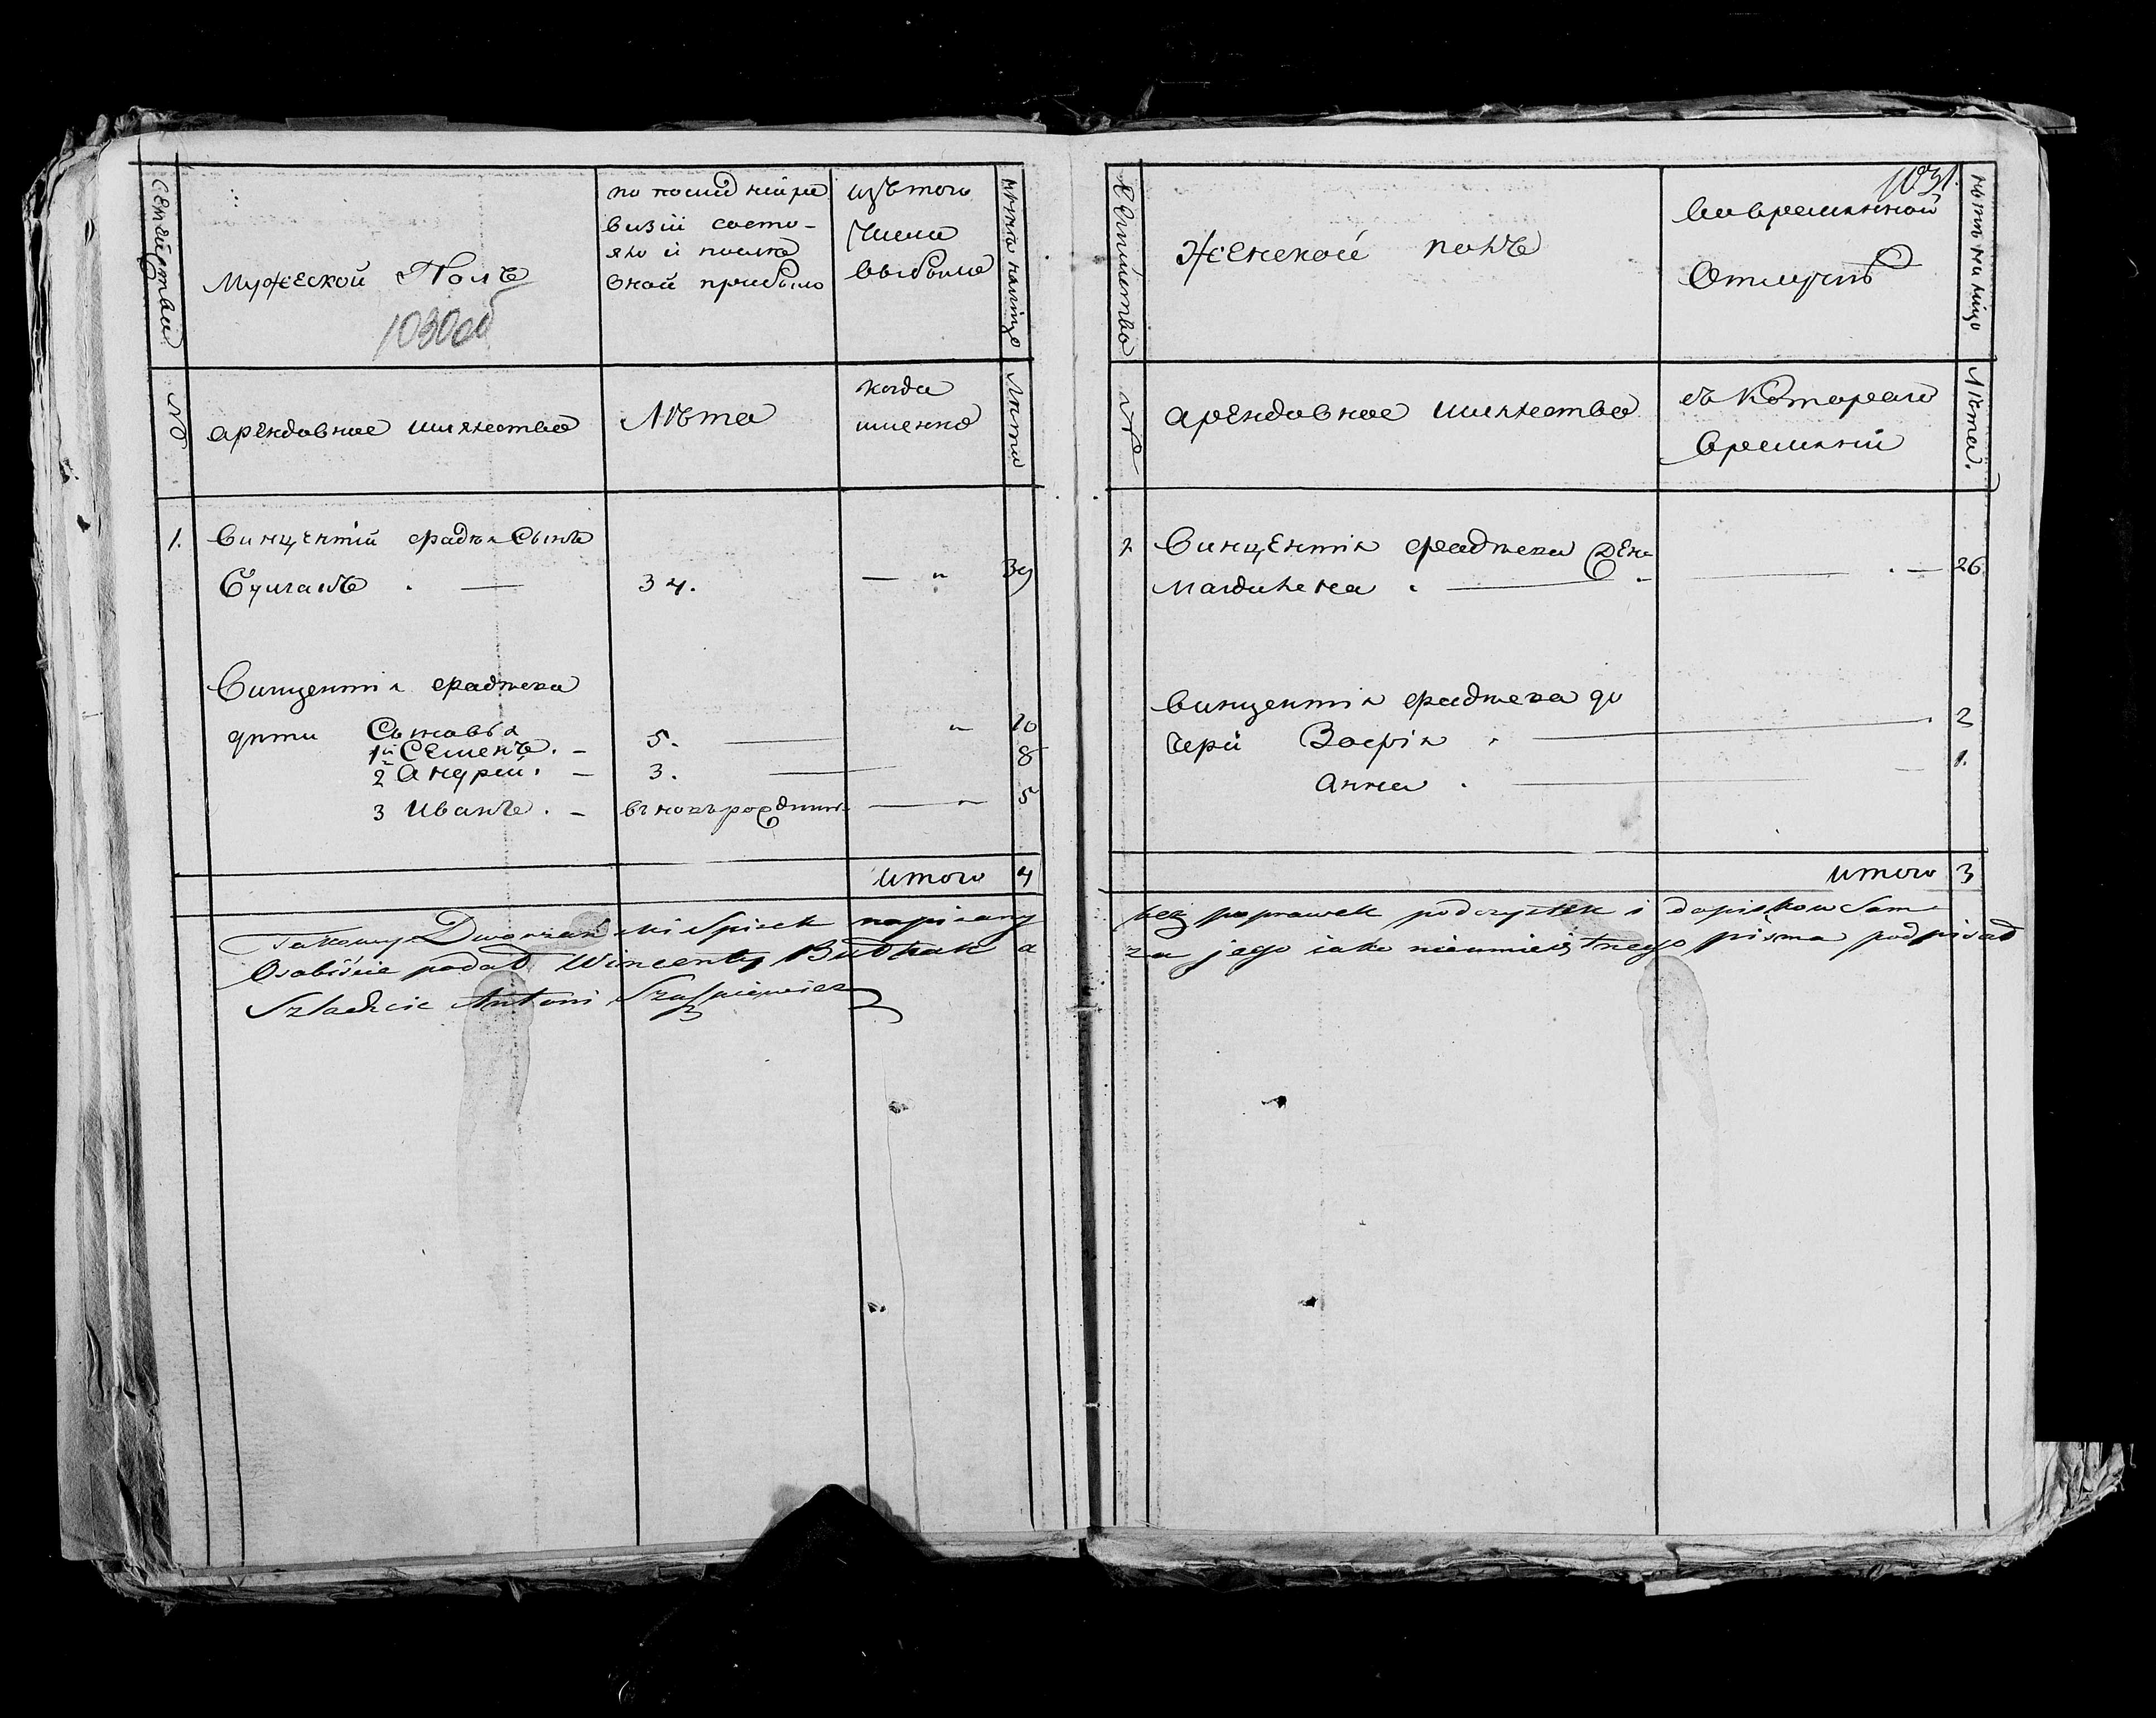 Семейства
Мужеской Полъ
1030об
по последней ре
визіи состо-
яло и после
оной прибыло
изъ того
числа
выбыло
ныне налицо
№
арендовное шляхество
Лѣта
когда
именно
Лѣта
1. Винцентій Фадѣя Сынъ
Буткакъ . — 34. — " 39
Винцентія Фадѣева
дѣти Сыновья
1й Семенъ. — 5. — " 10
2 Андрей. — 3. — 8
3 Иванъ. — въ новърождины — " 5
итого 4
Takowy Dworzański Spisek napisany
Osobiście podał Wincenty Butkak a
Szlachcic Antoni
1031.
Семейство
Женской полъ
Во временной
Отлучкѣ
ныне на лицо
№
арендовное шляхество
съ котораго
времяни
Лѣта.
1 Винцентія Фадѣева Жена
Магдалена . — . — 26
Винцентія Фадѣева до
чери Зофія . — . 2
Анна . — 1.
итого 3
bez poprawek podczystek i dopiskow Sam
za jego iako nieumieiętnego pisma podpisał